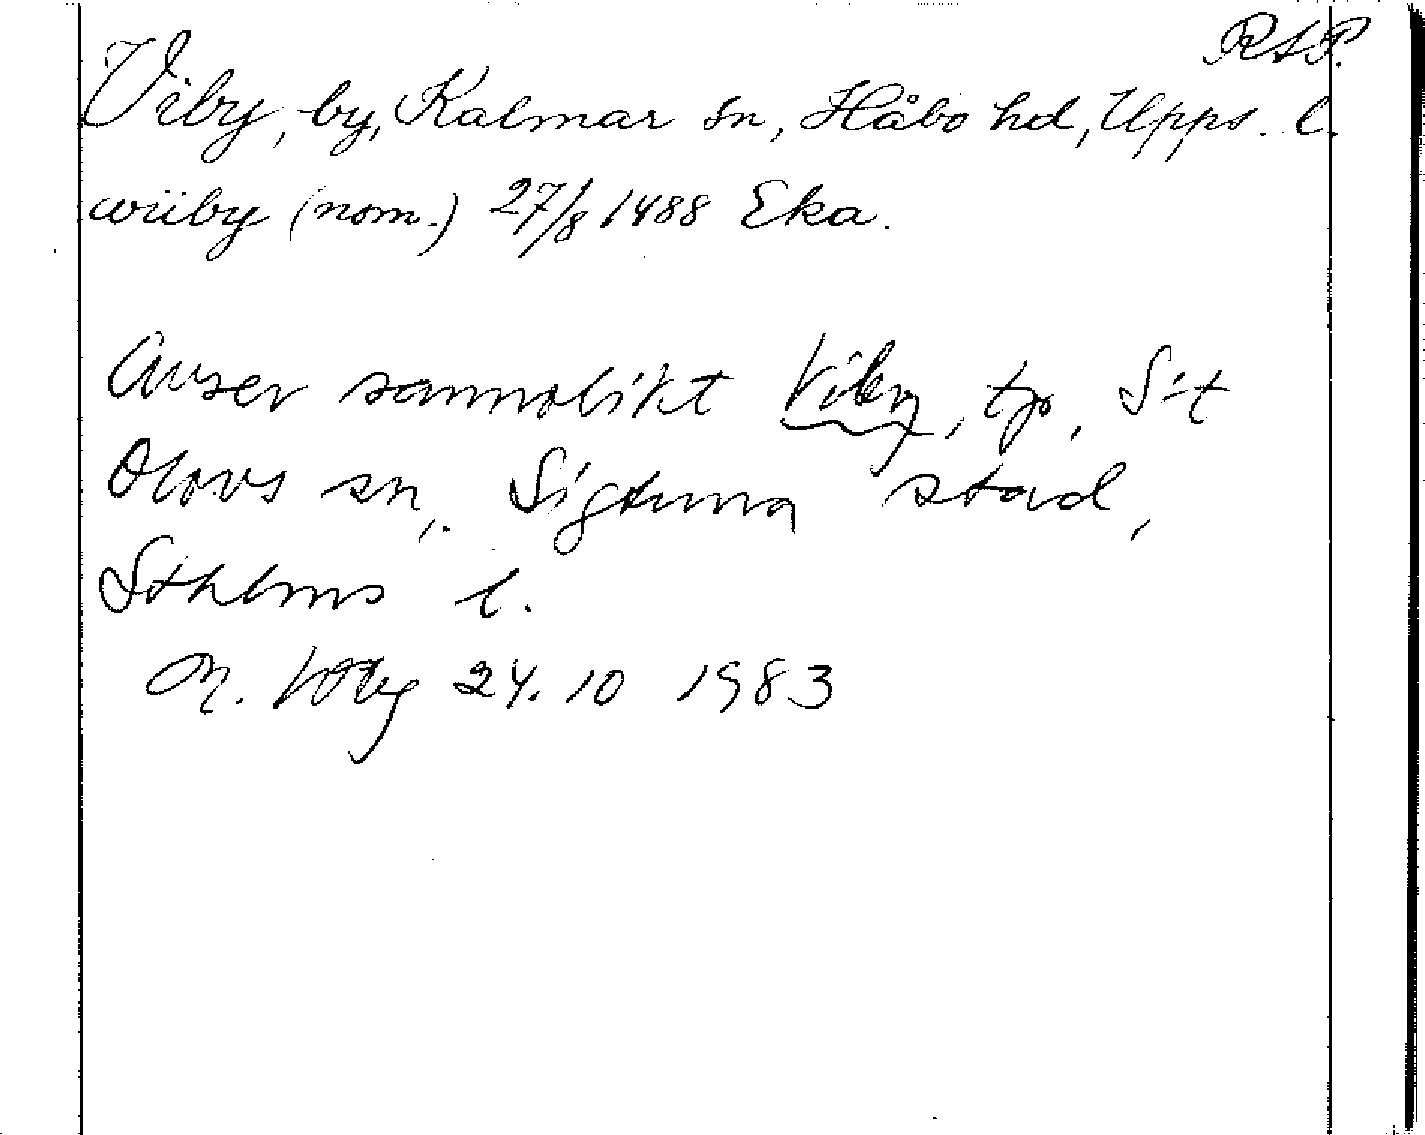 RAP.
Viby, by, Kalmar sn, Håbo hd, Upps. l.
wiiby (nom.) 27/8 1488 Eka.
Avser sannolikt Viby, tp, S:t
Olovs sn, Sigtuna stad,
Sthlms l.
M. 24.10 1983